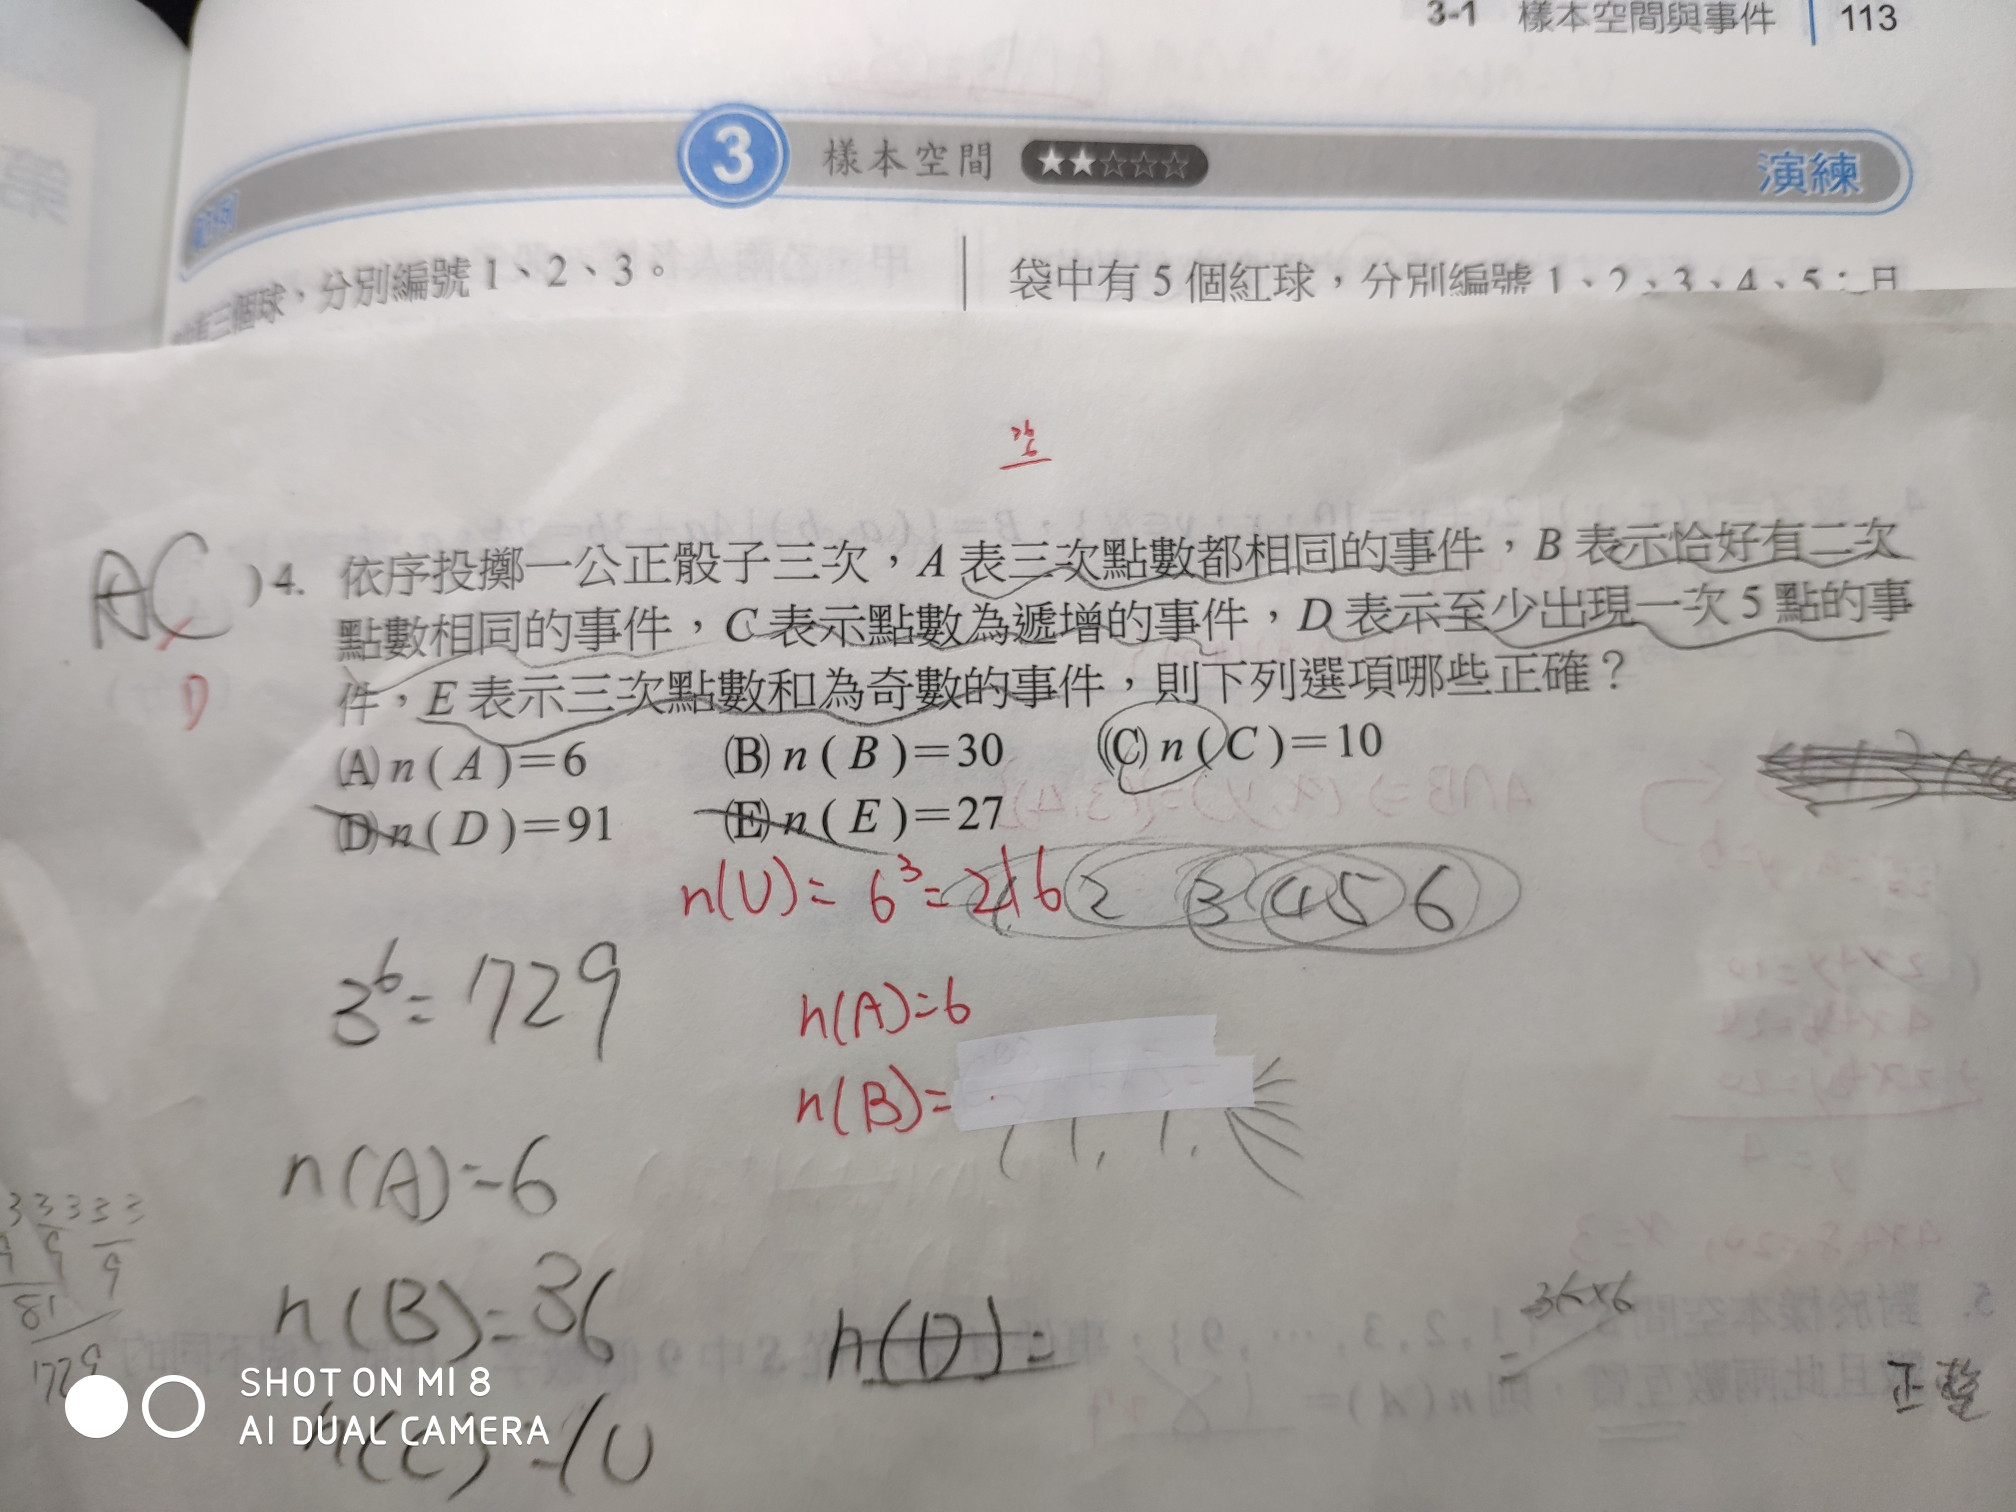 3-1 樣本空間與事件 113
3 樣本空間 演練
三個球，分別編號 1、2、3。
袋中有 5 個紅球，分別編號 1、2、3、4、5；且
AC
D
)4. 依序投擲一公正骰子三次，A 表三次點數都相同的事件，B 表示恰好有二次
點數相同的事件，C 表示點數為遞增的事件，D 表示至少出現一次 5 點的事
件，E 表示三次點數和為奇數的事件，則下列選項哪些正確？
(A) n ( A )=6 (B) n ( B )=30 (C) n ( C )=10
(D) n ( D )=91 (E) n ( E )=27
n(U)= 6³=216
2 3 4 5 6
3⁶=729
n(A)=6
n(B)=
n(A)=6
n(B)=36
n(D)=
n(C)=10
3 3 3 3 3 3
9 9 9
81
729
36×6
=
正整
SHOT ON MI 8
AI DUAL CAMERA